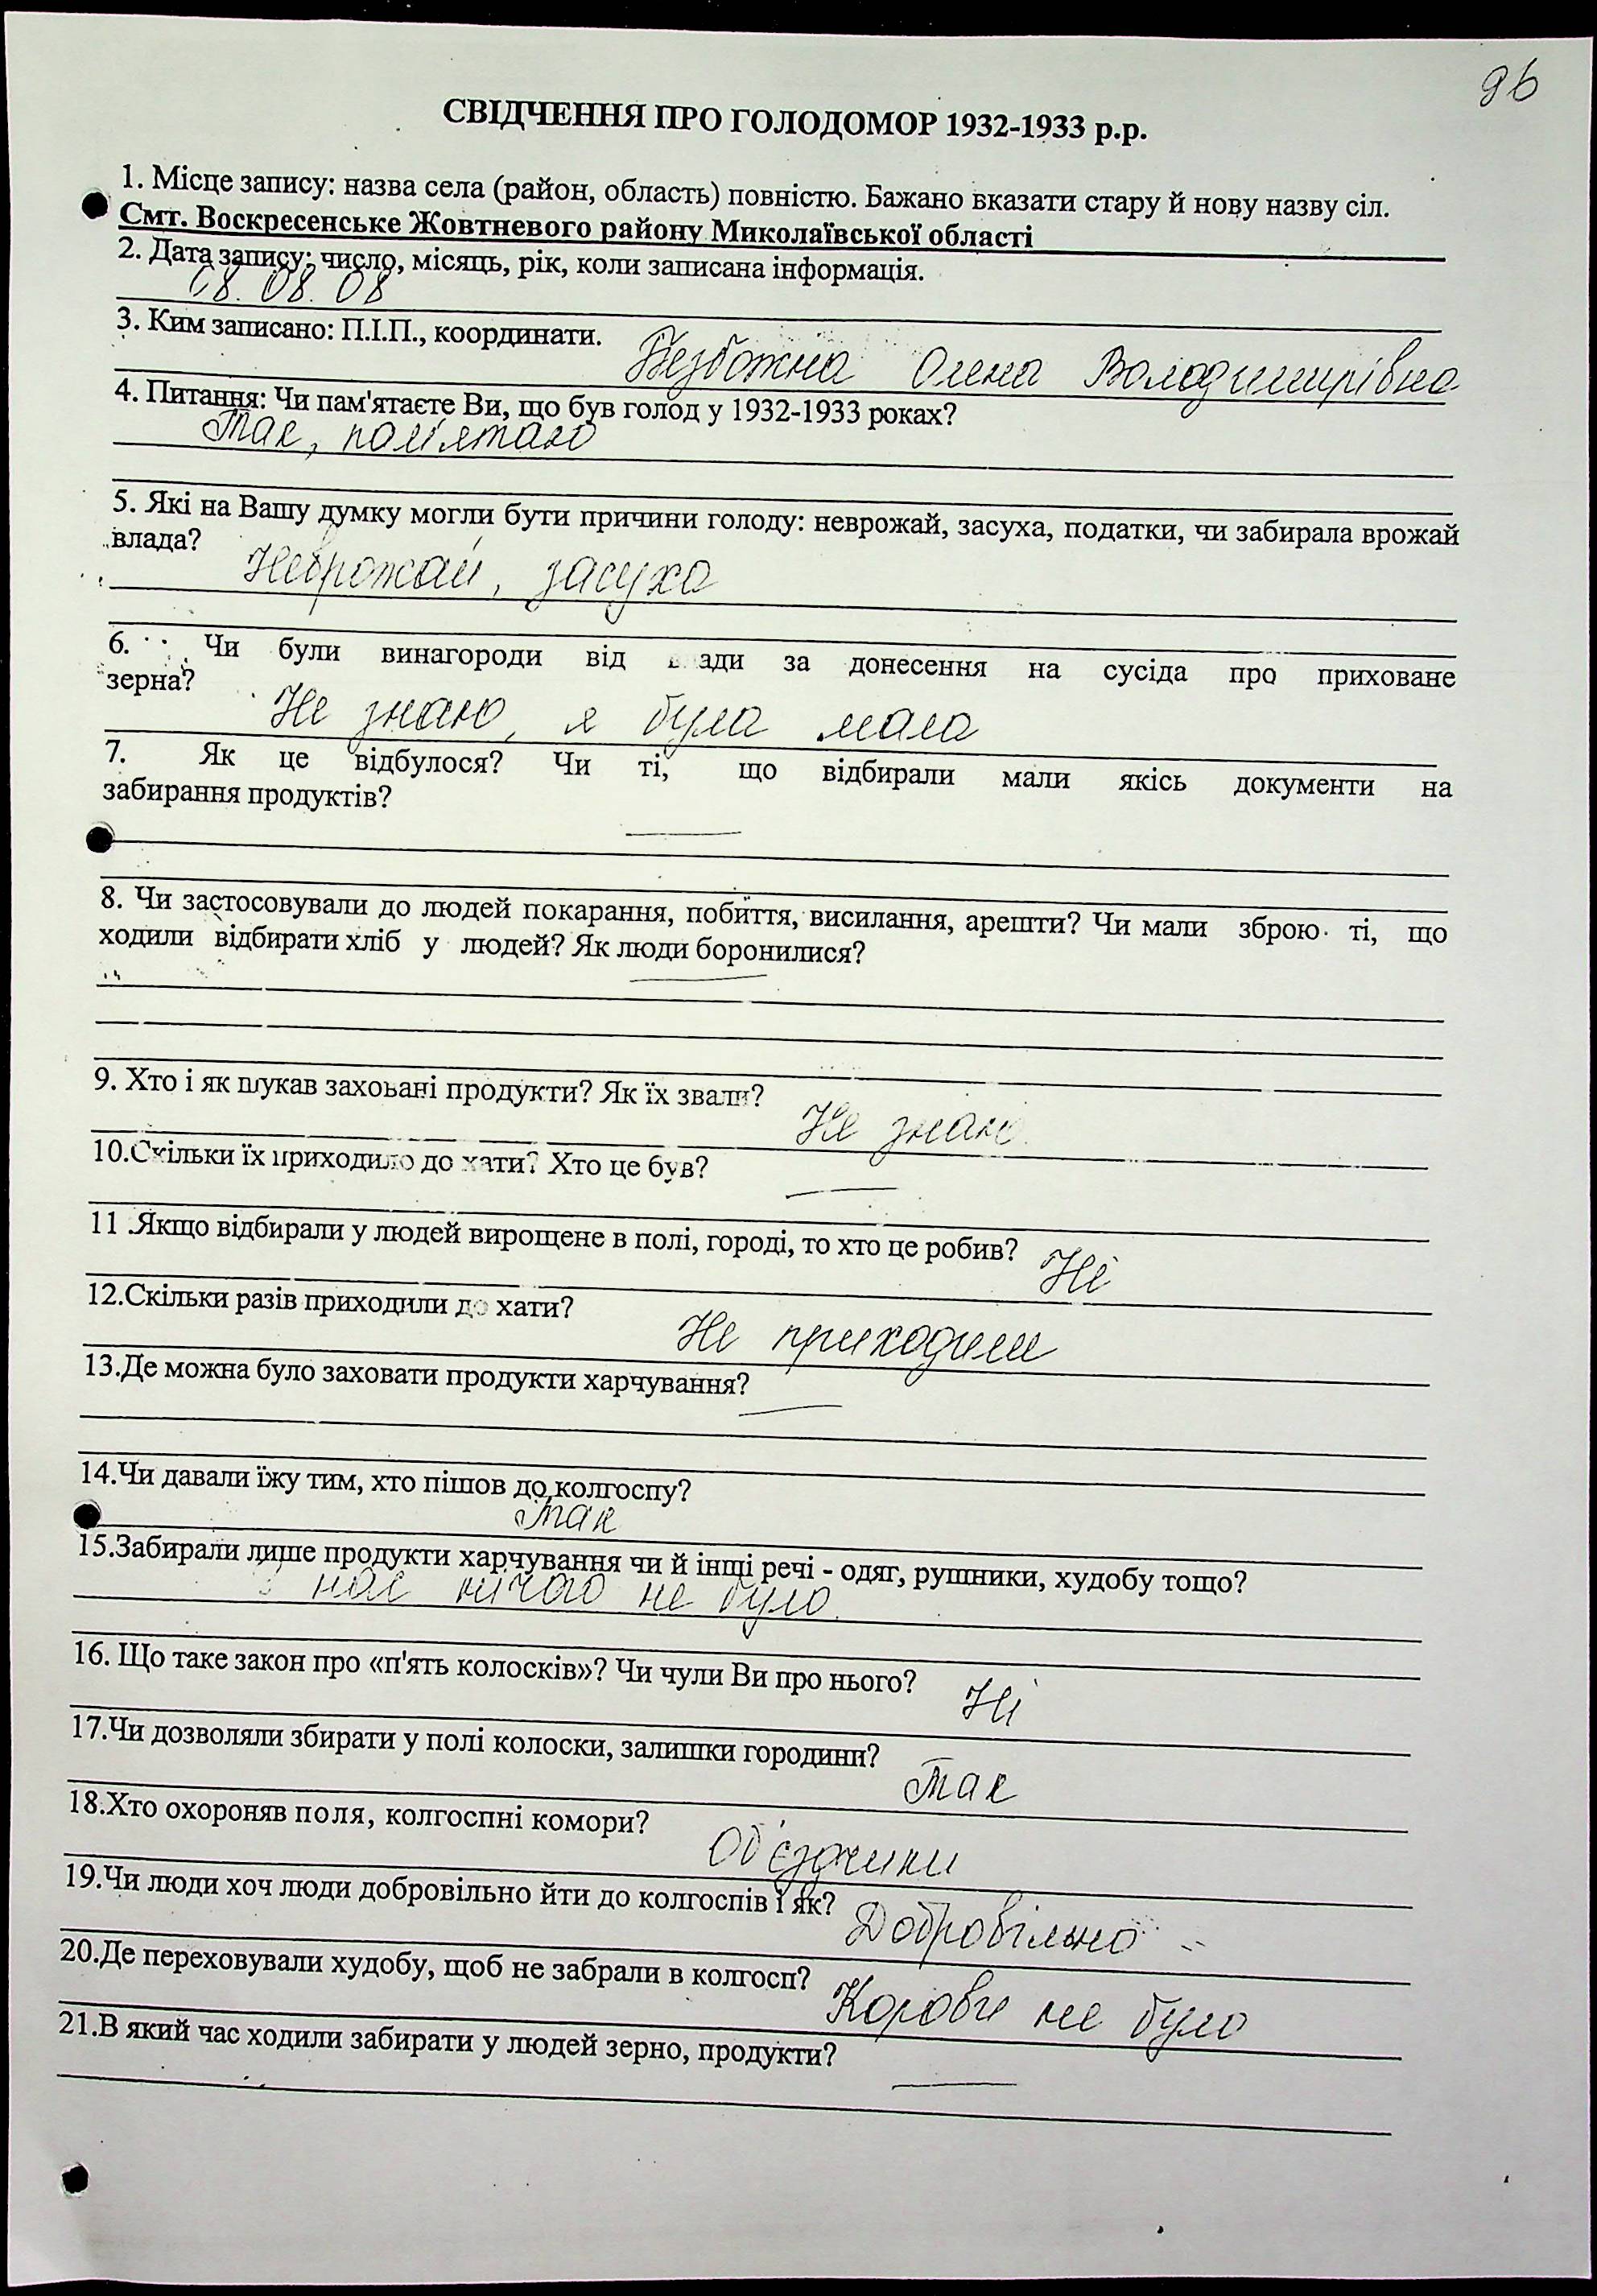 96
СВІДЧЕННЯ ПРО ГОЛОДОМОР 1932-1933 р.р.
1. Місце запису: назва села (район, область) повністю. Бажано вказати стару й нову назву сіл.
Смт. Воскресенське Жовтневого району Миколаївської області
2. Дата запису: число, місяць, рік, коли записана інформація.
18.08.08
3. Ким записано: П.І.П., координати. Безбожна Олена Володимирівна
4. Питання: Чи пам'ятаєте Ви, що був голод у 1932-1933 роках?
Так, пам'ятаю
5. Які на Вашу думку могли бути причини голоду: неврожай, засуха, податки, чи забирала врожай
влада? Неврожай, засуха
6. Чи були винагороди від влади за донесення на сусіда про приховане
зерна? Не знаю, я була мала
7. Як це відбулося? Чи ті, що відбирали мали якісь документи на
забирання продуктів? —
8. Чи застосовували до людей покарання, побиття, висилання, арешти? Чи мали зброю ті, що
ходили відбирати хліб у людей? Як люди боронилися?
—
9. Хто і як шукав заховані продукти? Як їх звали? Не знаю
10.Скільки їх приходило до хати? Хто це був? —
11 .Якщо відбирали у людей вирощене в полі, городі, то хто це робив? Ні
12.Скільки разів приходили до хати? Не приходили
13.Де можна було заховати продукти харчування? —
14.Чи давали їжу тим, хто пішов до колгоспу?
Так
15.Забирали лише продукти харчування чи й інші речі - одяг, рушники, худобу тощо?
У нас нічого не було.
16. Що таке закон про «п'ять колосків»? Чи чули Ви про нього? Ні
17.Чи дозволяли збирати у полі колоски, залишки городини? Так
18.Хто охороняв поля, колгоспні комори? Об'єздчики
19.Чи люди хоч люди добровільно йти до колгоспів і як? Добровільно
20.Де переховували худобу, щоб не забрали в колгосп? Корови не було
21.В який час ходили забирати у людей зерно, продукти? —